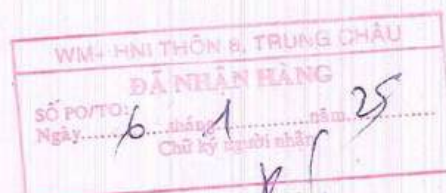 WM+ HNI THÔN 8, TRUNG CHÂU
ĐÃ NHẬN HÀNG
SỐ PO/TO:
Ngày 6 tháng 1 năm 25
Chữ ký người nhận